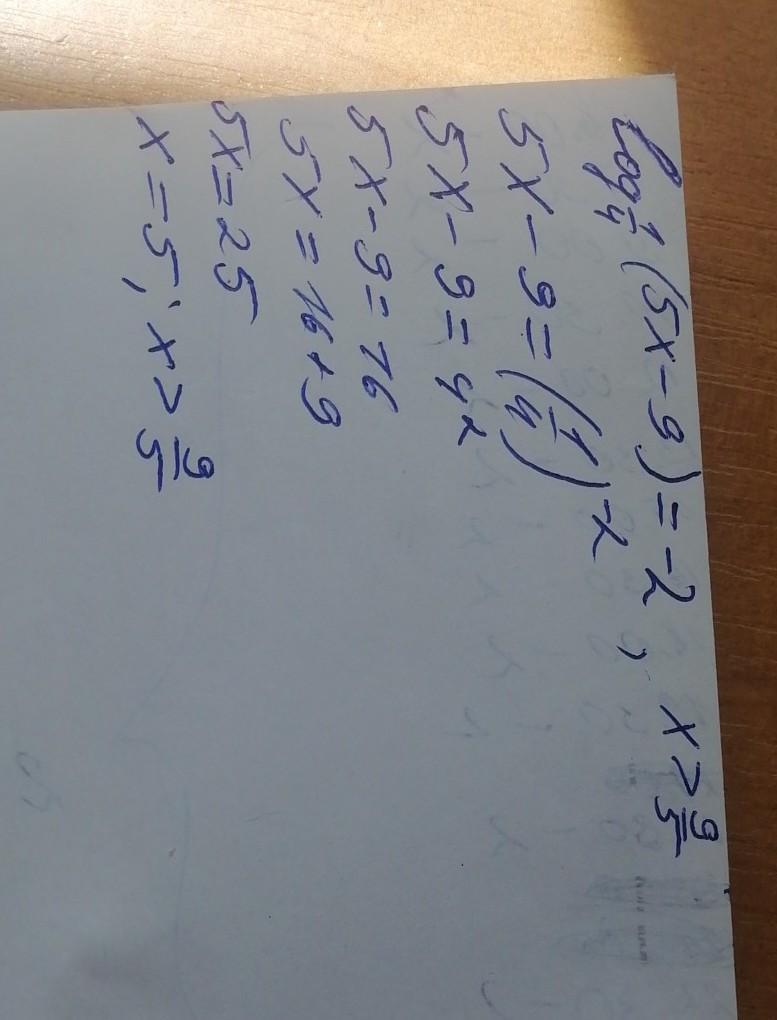 log 1/4 (5x - 9) = -2, x > 9/5
5x - 9 = (1/4)^-2
5x - 9 = 4^2
5x - 9 = 16
5x = 16 + 9
5x = 25
x = 5; x > 9/5